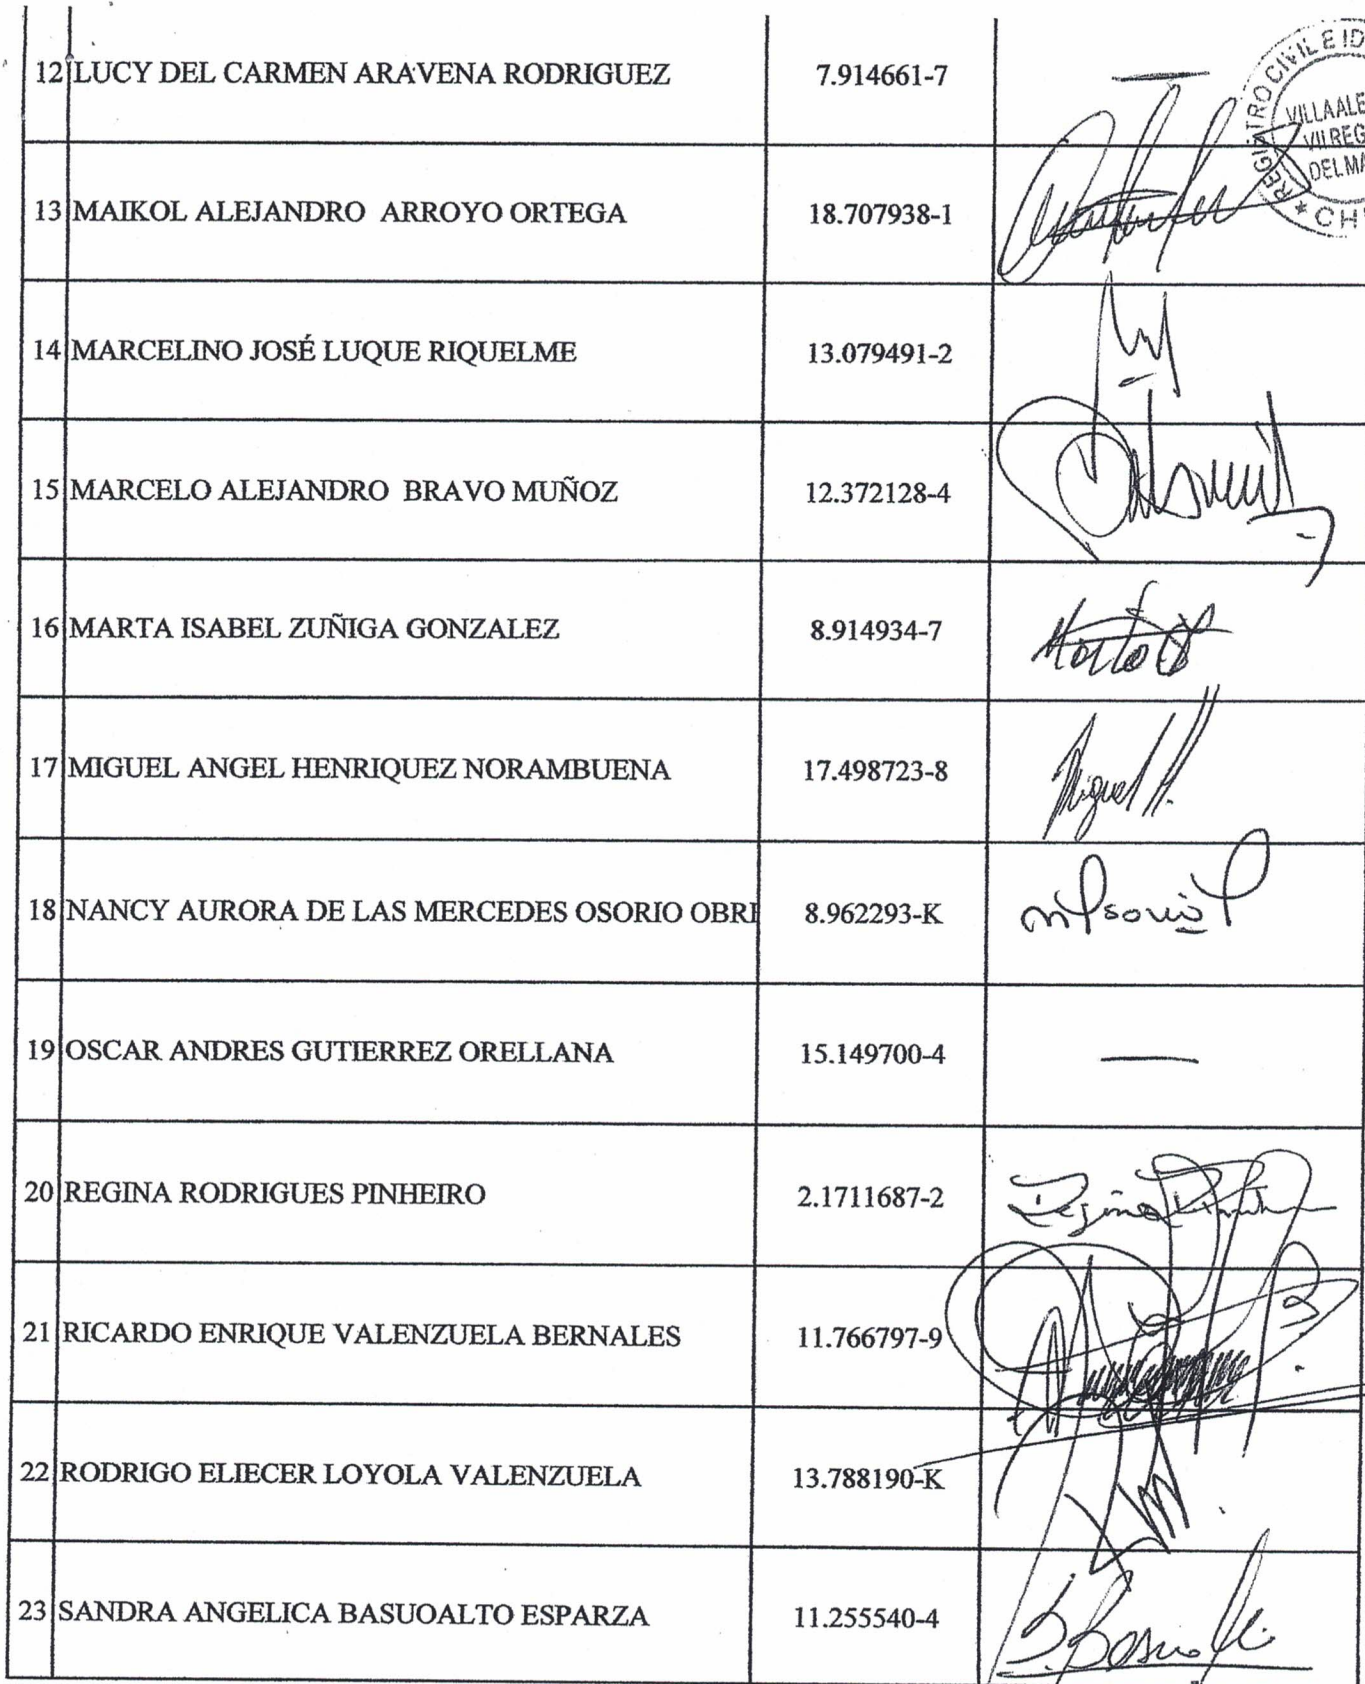 12 LUCY DEL CARMEN ARAVENA RODRIGUEZ 7.914661-7 —
REGISTRO CIVIL E ID
VILLA ALE
VII REG
DEL MA
* CHI
13 MAIKOL ALEJANDRO ARROYO ORTEGA 18.707938-1
14 MARCELINO JOSÉ LUQUE RIQUELME 13.079491-2
15 MARCELO ALEJANDRO BRAVO MUÑOZ 12.372128-4
16 MARTA ISABEL ZUÑIGA GONZALEZ 8.914934-7 Marta
17 MIGUEL ANGEL HENRIQUEZ NORAMBUENA 17.498723-8 Miguel H.
18 NANCY AURORA DE LAS MERCEDES OSORIO OBRE 8.962293-K
19 OSCAR ANDRES GUTIERREZ ORELLANA 15.149700-4 —
20 REGINA RODRIGUES PINHEIRO 2.1711687-2 Regina
21 RICARDO ENRIQUE VALENZUELA BERNALES 11.766797-9
22 RODRIGO ELIECER LOYOLA VALENZUELA 13.788190-K
23 SANDRA ANGELICA BASUOALTO ESPARZA 11.255540-4